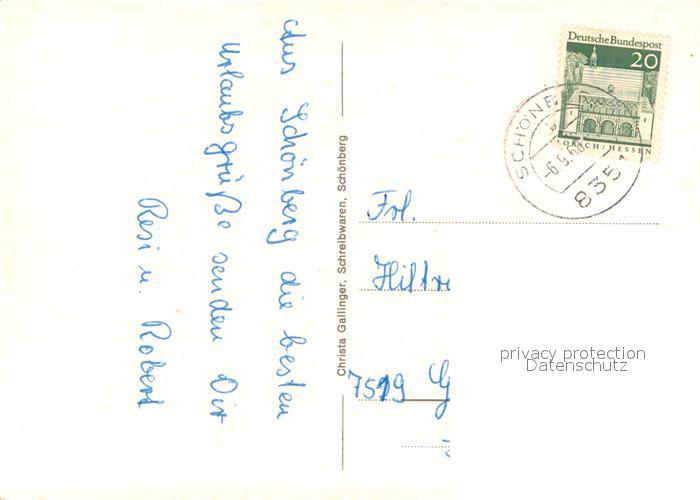 Aus Schönberg die besten
Urlaubsgrüße senden Dir
Resi u. Robert
Christa Gallinger, Schreibwaren, Schönberg
Deutsche Bundespost
20
LORSCH/HESSEN
8351
Frl.
privacy protection
Datenschutz